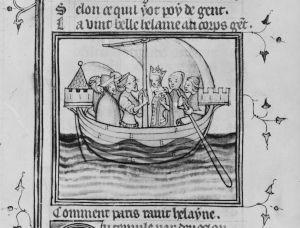 Selon ce quil yot poy de gent.
La vint belle helaine a ti corps gēt.
Comment paris rauit helayne.